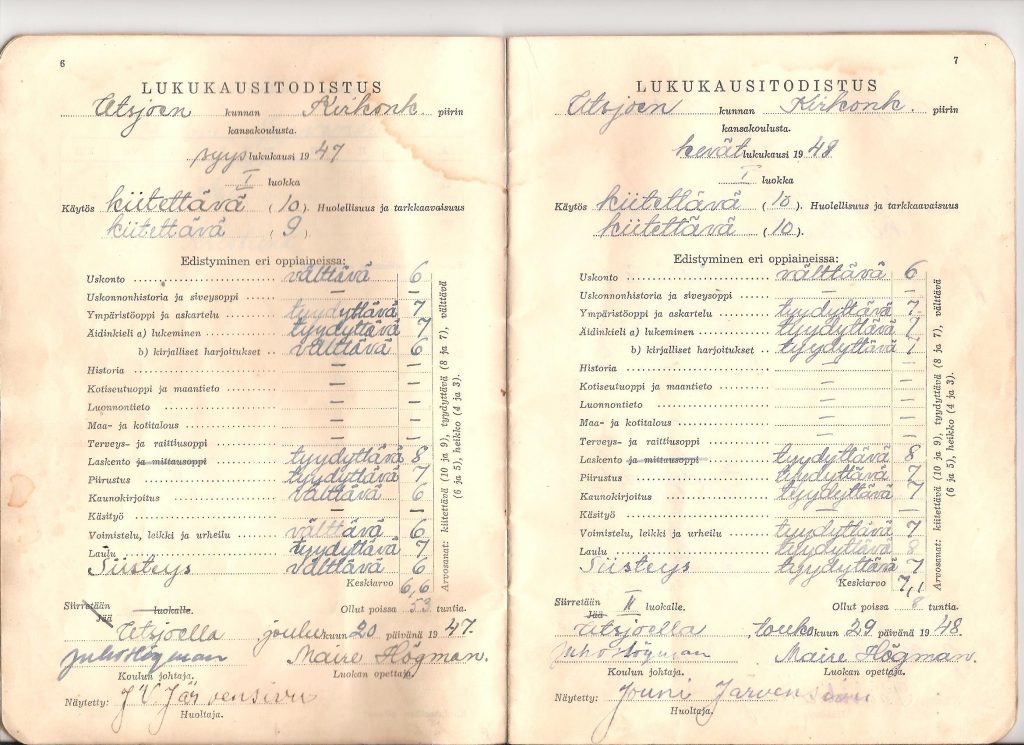 6
LUKUKAUSITODISTUS
Utsjoen kunnan Kirkonk. piirin
kansakoulusta.
syys lukukausi 1947
I luokka
Käytös kiitettävä (10). Huolellisuus ja tarkkaavaisuus
kiitettävä (9).
Edistyminen eri oppiaineissa:
Uskonto välttävä 6
Uskonnonhistoria ja siveysoppi — —
Ympäristöoppi ja askartelu tyydyttävä 7
Äidinkieli a) lukeminen tyydyttävä 7
b) kirjalliset harjoitukset välttävä 6
Historia — —
Kotiseutuoppi ja maantieto — —
Luonnontieto — —
Maa- ja kotitalous — —
Terveys- ja raittiusoppi — —
Laskento ja mittausoppi tyydyttävä 8
Piirustus tyydyttävä 7
Kaunokirjoitus välttävä 6
Käsityö — —
Voimistelu, leikki ja urheilu välttävä 6
Laulu tyydyttävä 7
Siisteys välttävä 6
Keskiarvo 6,6
Arvosanat: kiitettävä (10 ja 9), tyydyttävä (8 ja 7), välttävä
(6 ja 5), heikko (4 ja 3).
Siirretään
Jää
luokalle. Ollut poissa 53 tuntia.
Utsjoella joulukuun 20 päivänä 1947.
Juho Högman Maire Högman.
Koulun johtaja. Luokan opettaja.
Näytetty: J V Järvensivu
Huoltaja.
7
LUKUKAUSITODISTUS
Utsjoen kunnan Kirkonk. piirin
kansakoulusta.
kevät lukukausi 1948
I luokka
Käytös kiitettävä (10). Huolellisuus ja tarkkaavaisuus
kiitettävä (10).
Edistyminen eri oppiaineissa:
Uskonto välttävä 6
Uskonnonhistoria ja siveysoppi — —
Ympäristöoppi ja askartelu tyydyttävä 7
Äidinkieli a) lukeminen tyydyttävä 7
b) kirjalliset harjoitukset tyydyttävä 7
Historia — —
Kotiseutuoppi ja maantieto — —
Luonnontieto — —
Maa- ja kotitalous — —
Terveys- ja raittiusoppi — —
Laskento ja mittausoppi tyydyttävä 8
Piirustus tyydyttävä 7
Kaunokirjoitus tyydyttävä 7
Käsityö — —
Voimistelu, leikki ja urheilu tyydyttävä 7
Laulu tyydyttävä 8
Siisteys tyydyttävä 7
Keskiarvo 7,1
Arvosanat: kiitettävä (10 ja 9), tyydyttävä (8 ja 7), välttävä
(6 ja 5), heikko (4 ja 3).
Siirretään
Jää
II luokalle. Ollut poissa 8 tuntia.
Utsjoella toukokuun 29 päivänä 1948.
Juho Högman Maire Högman.
Koulun johtaja. Luokan opettaja.
Näytetty: Jouni Järvensivu
Huoltaja.